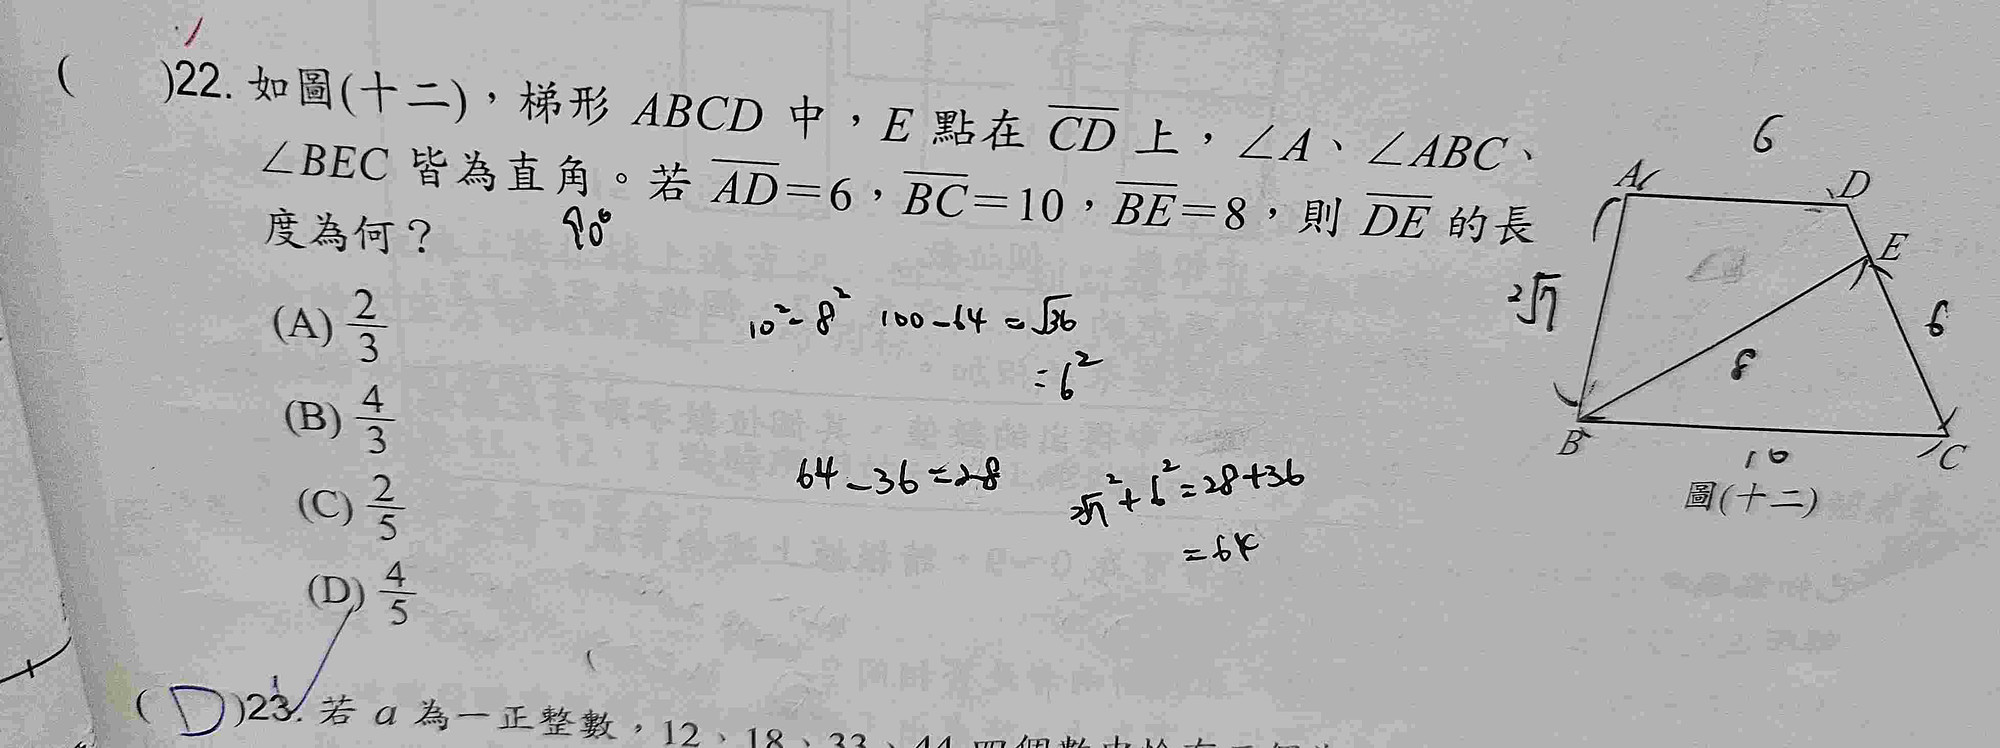 ( )22. 如圖(十二)，梯形 ABCD 中，E 點在 CD 上，∠A、∠ABC、
∠BEC 皆為直角。若 AD=6，BC=10，BE=8，則 DE 的長
度為何？
90°
(A) 2/3
(B) 4/3
(C) 2/5
(D) 4/5
10²-8² 100-64 =√36
=6²
64-36=28
2√7²+6²=28+36
=64
6
A
D
E
2√7
8
6
B
10
C
圖(十二)
( D )23. 若 a 為一正整數，12、18、33、44 四個數中恰有